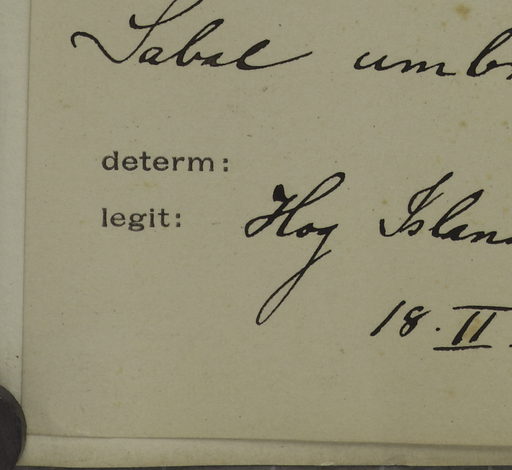 Sabal umb
determ:
legit: Hog Island
18. II